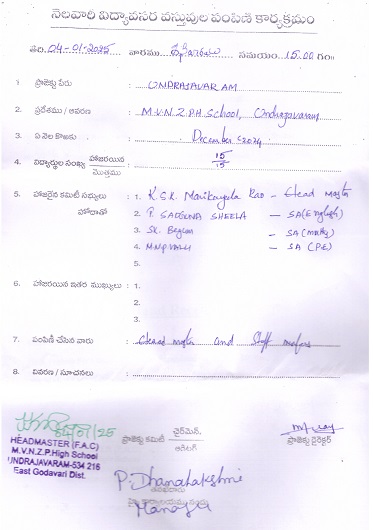 నెలవారి విద్యావసర వస్తువుల పంపిణి కార్యక్రమం
తేది. 04-01-2025 వారము సమయం 15.00 గం॥
1 ప్రాజెక్టు పేరు : UNDRAJAVARAM
2. ప్రదేశము / ఆవరణ : M.V.N.Z.P.H School, Undrajavaram
3. ఏ నెల కొఱకు : December 2024
4. విద్యార్థుల సంఖ్య హాజరయిన / మొత్తము : 15/15
5. హాజరైన కమిటీ సభ్యులు : 1. K.S.K. Manikayala Rao - Head Master
హోదాతో 2. P. SAROJNA SHEELA - SA (English)
3. Sk. Begum - SA (maths)
4. MNP VALLI - SA (P.E)
5.
6. హాజరయిన ఇతర ముఖ్యులు : 1.
2.
3.
7. పంపిణీ చేసిన వారు : Head master and Staff
8. వివరణ / సూచనలు :
HEADMASTER (F.A.C)
M.V.N.Z.P.High School
UNDRAJAVARAM-534 216
East Godavari Dist.
ప్రాజెక్టు కమిటీ ఛైర్మెన్,
ప్రాజెక్టు డైరెక్టర్
P. Dhanalakshmi
Manager